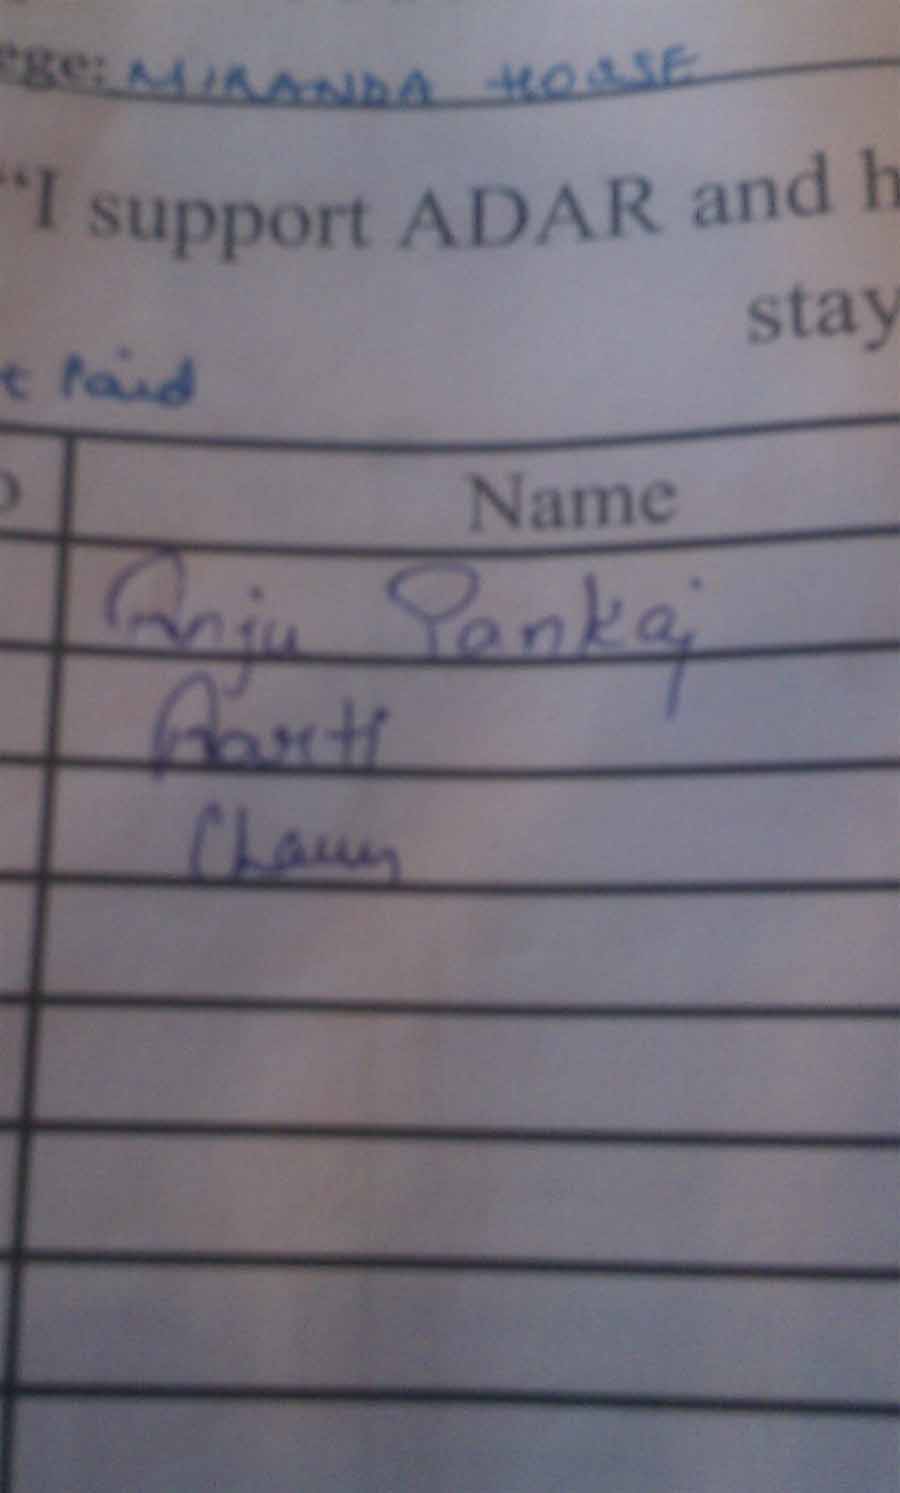 ege: MIRANDA HOUSE
"I support ADAR and h
stay
t Paid
o Name
Anju Pankaj
Aarti